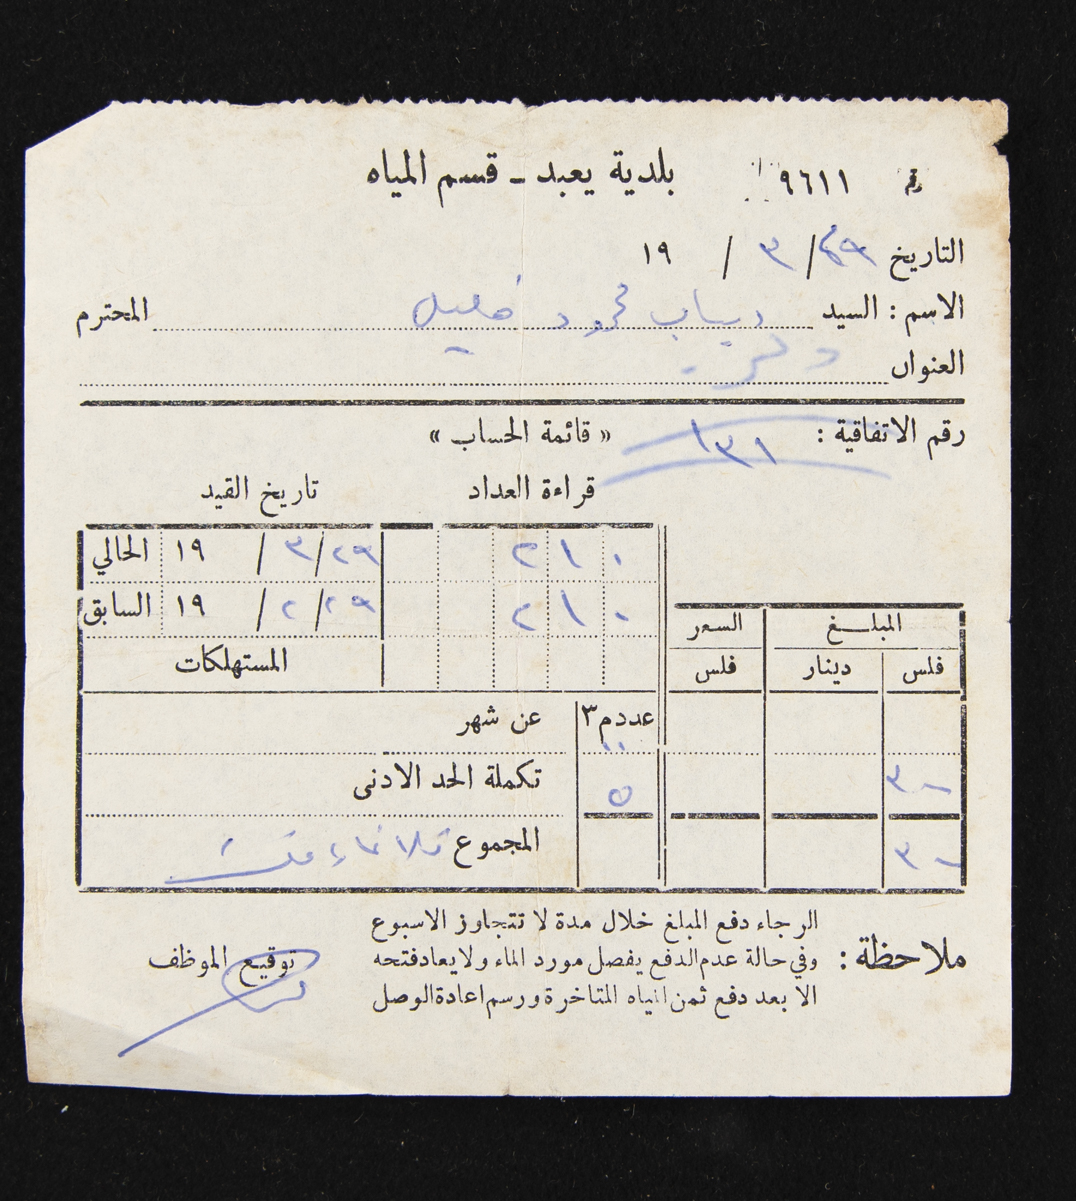 رقم ٩٦١١ بلدية يعبد ـ قسم المياه
التاريخ ٢٩/ ٣ / ١٩
الاسم : السيد ذياب محمود خليل المحترم
العنوان
رقم الاتفاقية : ١٣١ « قائمة الحساب »
قراءة العداد تاريخ القيد
٢١٠ ٢٩/ ٣ / ١٩ الحالي
٢١٠ ٢٩/ ٢ / ١٩ السابق
المبلـــغ السعر
المستهلكات
فلس دينار فلس
عدد م٣ عن شهر
٣٠٠ ٥ تكملة الحد الادنى
٣٠٠ المجموع ثلاثماية فلس
ملاحظة : الرجاء دفع المبلغ خلال مدة لا تتجاوز الاسبوع
وفي حالة عدم الدفع يفصل مورد الماء ولا يعاد فتحه
الا بعد دفع ثمن المياه المتاخرة ورسم اعادة الوصل
توقيع الموظف